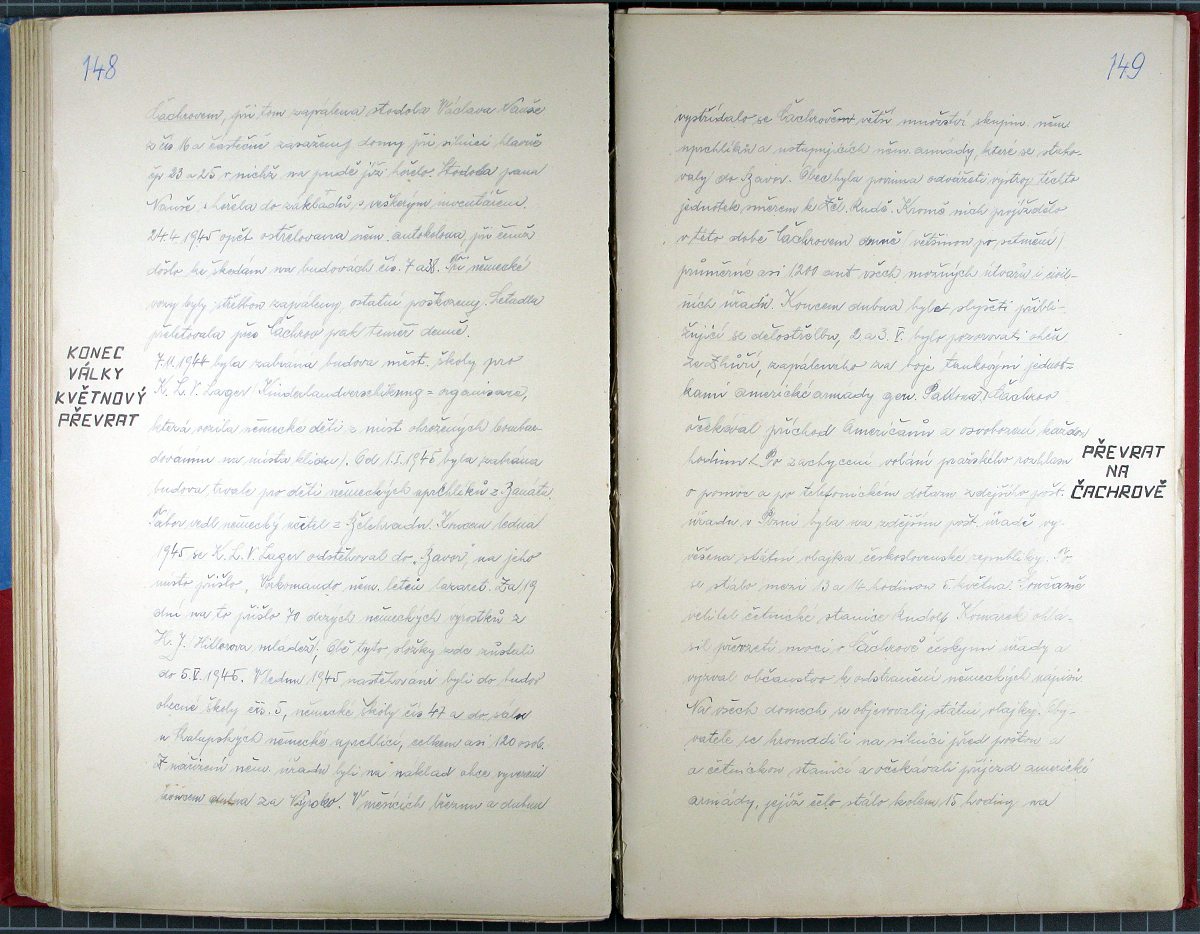 148
Čáchrovem, při tom zapálena stodola Václava Nauše
z čís 16 a částečně zasaženy domy při silnici hlavně
čp 23 a 25 v nichž na půdě již hořelo. Stodola pana
Nauše, shořela do základů, s veškerým inventářem.
24.4.1945 opět ostřelována něm. autokolona, při čemž
došlo ke škodám na budovách čís. 7 a 38. Tři německé
vozy byly střelbou zapáleny, ostatní poškozeny. Letadla
přeletovala přes Čáchrov pak téměř denně.
KONEC
VÁLKY
KVĚTNOVÝ
PŘEVRAT
7.11.1944 byla zabrána budova měst. školy pro
K. L. V. Lager /Kinderlandverschikung = organisace,
která vozila německé děti z míst ohrožených bombar-
dováním na místa klidu/. Od 1.I.1945 byla zabrána
budova trvale pro děti německých uprchlíků z Banátu.
Tábor vedl německý učitel z Bělehradu. Koncem ledna
1945 se K. L. V. Lager odstěhoval do „Javoř", na jeho
místo přišlo, Vorkomando něm. letců lazaret. Za 19
dní na to přišlo 70 drzých německých výrostků z
H. J. /Hitlerova mládež/. Obě tyto složky zde zůstali
do 5.V.1945. V lednu 1945 nastěhováni byli do budov
obecné školy čís. 5, německé školy čís 47 a do salu
u Chalupských němečtí uprchlíci, celkem asi 120 osob.
Z nařízení něm. úřadu byli na náklad obce vyvezeni
koncem dubna za Výrov. V měsících březnu a dubnu
149
vystřídalo se Čáchrovem větší množství skupin něm.
uprchlíků a ustupujících něm. armády, které se stěho-
valy do Bavor. Obec byla povinna odvážeti výstroj těchto
jednotek směrem k Žel. Rudě. Kromě nich projíždělo
v této době Čáchrovem denně /většinou po setmění/
průměrně asi 1200 aut všech možných útvarů i civil-
ních úřadů. Koncem dubna bylo slyšeti přibli-
žující se dělostřelbu, 2 a 3. V. bylo pozorovati oheň
ze Zhůří, zapáleného za boje, tankovými jednot-
kami americké armády gen. Pattona. Čáchrov
očekával příchod Američanů a osvobození každou
hodinu.
PŘEVRAT
NA
ČACHROVĚ
Po zachycení volání pražského rozhlasu
o pomoc a po telefonickém dotazu zdejšího pošt.
úřadu v Plzni byla na zdejším pošt. úřadě vy-
věšena státní vlajka československé republiky. To
se stalo mezi 13 a 14 hodinou 5. května. Současně
velitel četnické stanice Rudolf Komárek ohlá-
sil převzetí moci v Čáchrově českými úřady a
vyzval občanstvo k odstranění německých nápisů.
Na všech domech se objevovaly státní vlajky. Oby-
vatelé se hromadili na silnici před poštou a
a četnickou stanicí a očekávali příjezd americké
armády, jejíž čelo stálo kolem 15 hodiny na